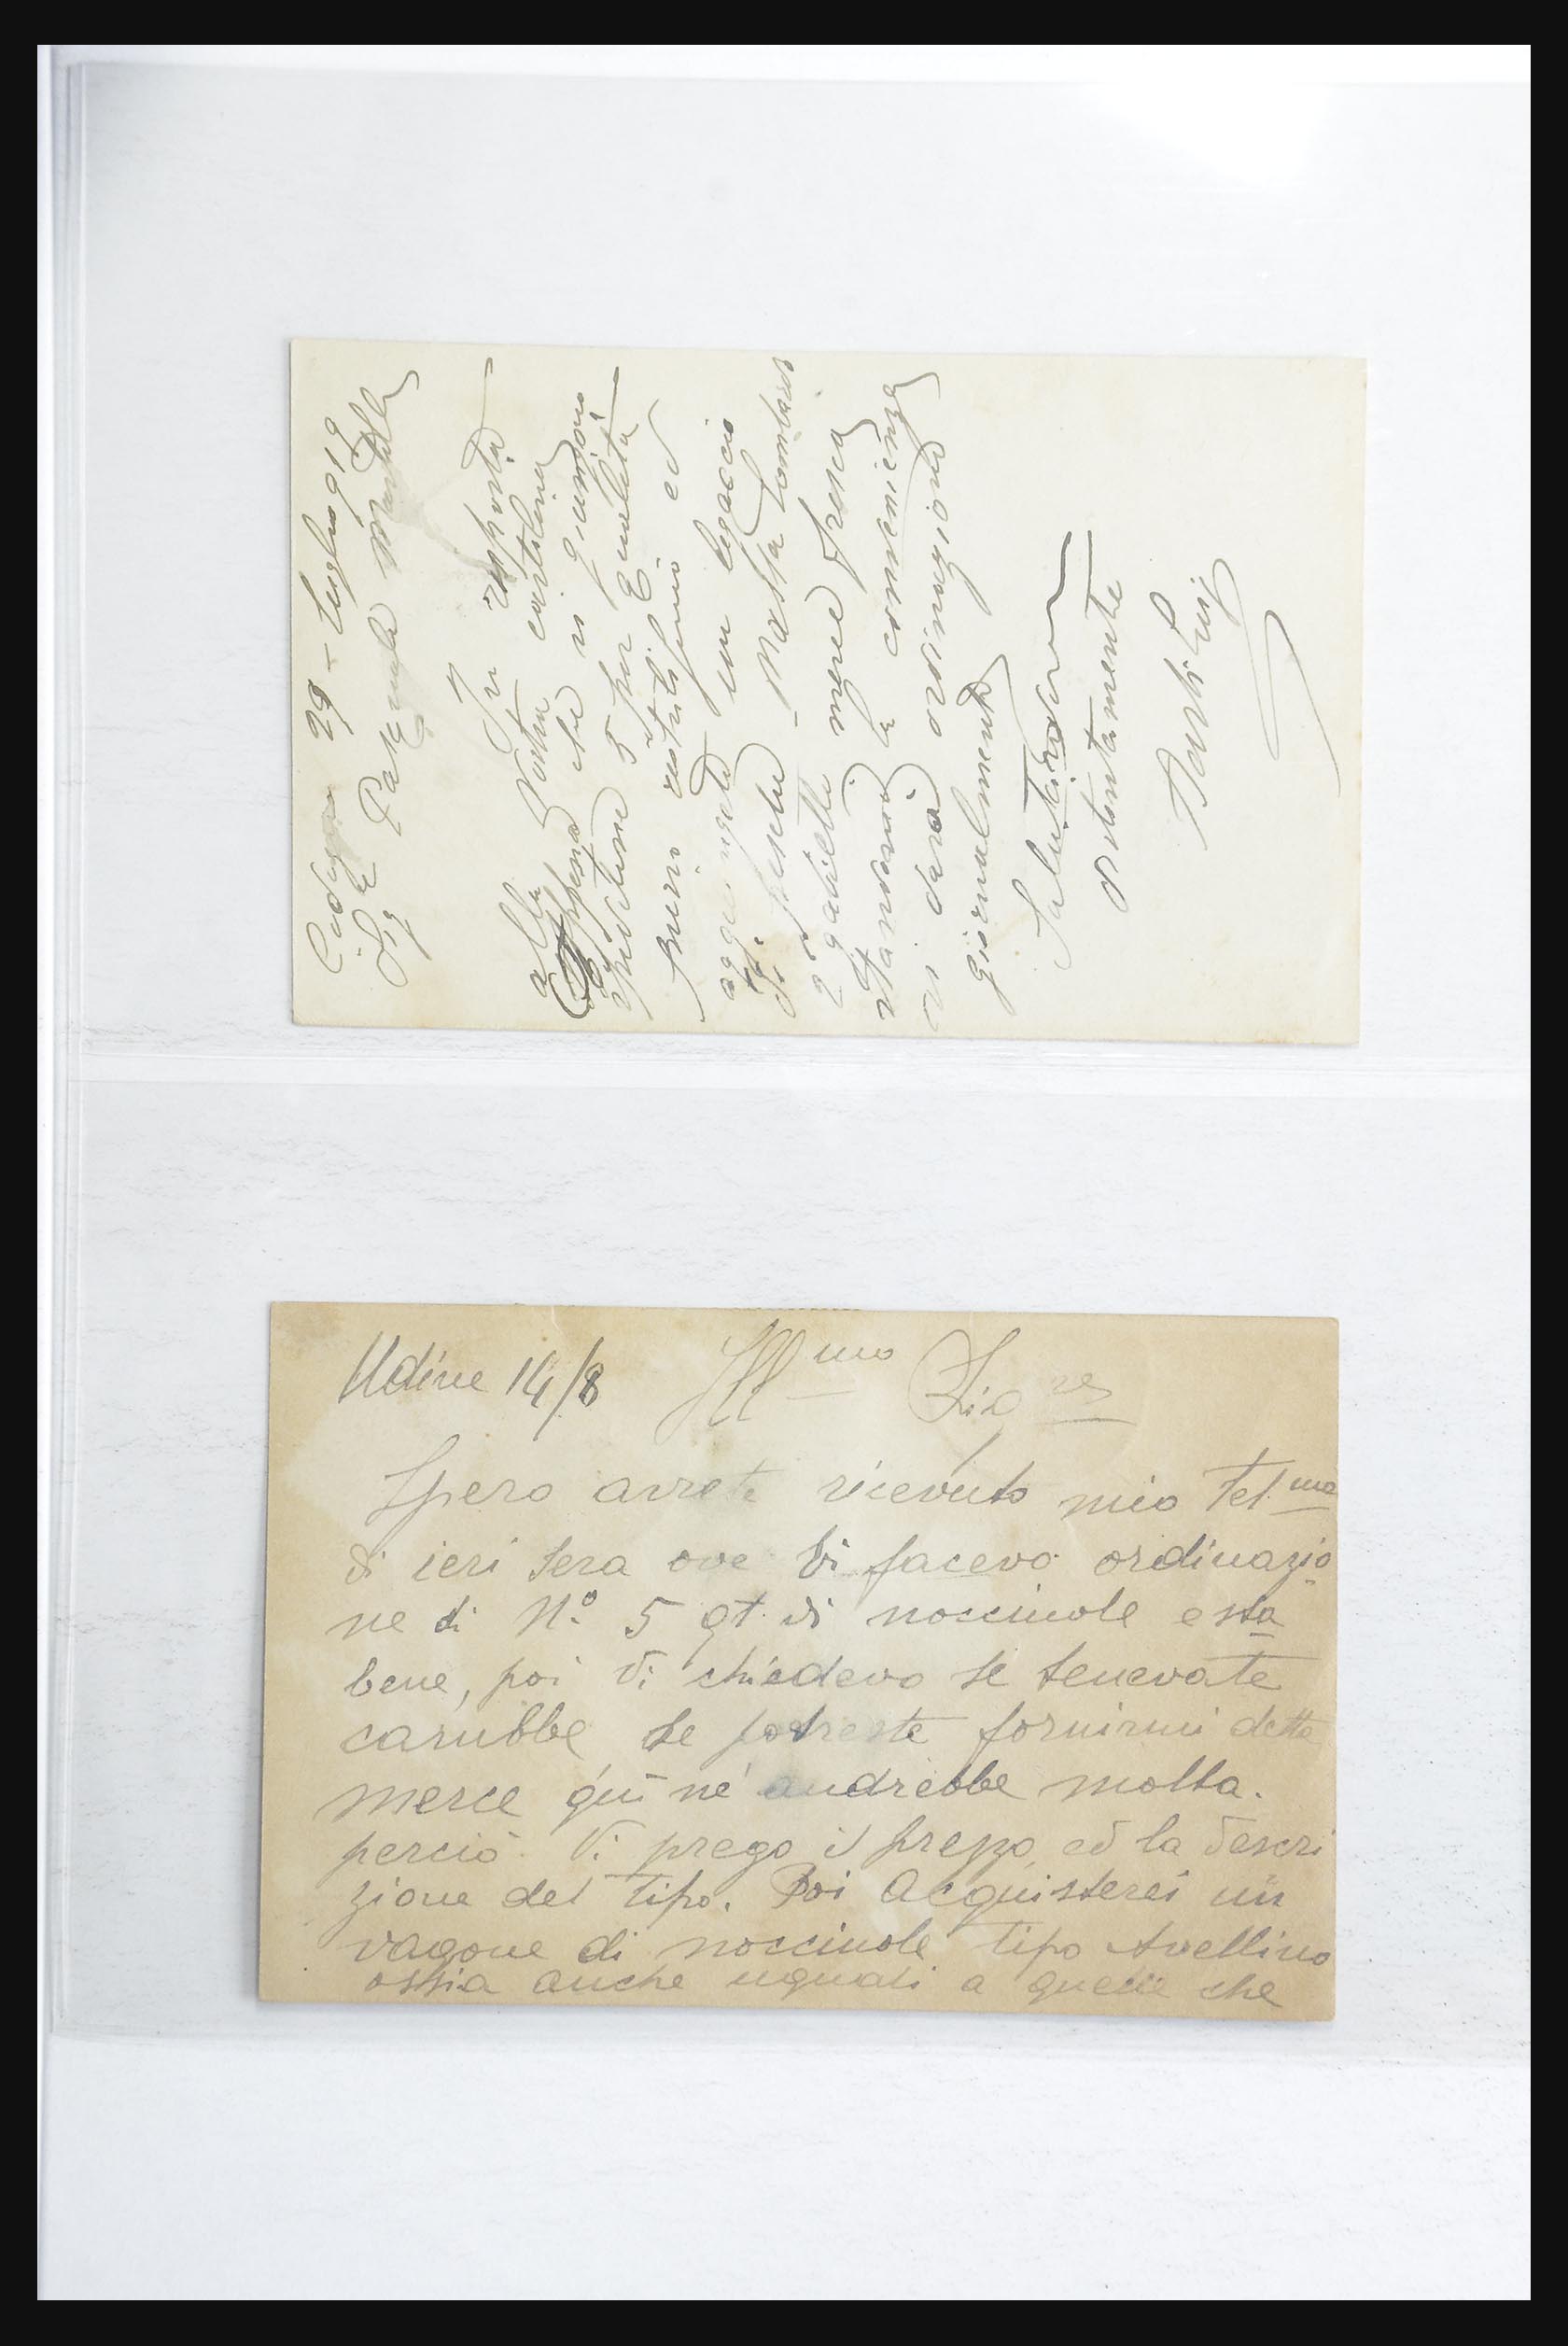 29 - Luglio 919
Sig
In risposta
alla Vostra cartolina
Appena che vi giungono
speditene 5 per qualità
aggiungete un legaccio
pesche - Massa Lombarda
2 gabiette merce fresca
la convenienza
vi darà ordinazione
giornalmente
Salutandovi
distintamente
Udine 14/8 Ill mo Sig re
Spero avrete ricevuto mio Tel. mma
di ieri sera ove Vi facevo ordinazio
ne di N.° 5 qt. di nocciuole e sta
bene, poi Vi chiedevo se tenevate
carubbe se potreste fornirmi dette
merce qui né andrebbe molta.
perciò Vi prego il prezzo ed la descri
zione del tipo. Poi acquisterei un
vagone di nocciuole tipo Avellino
ossia anche uguali a quelle che